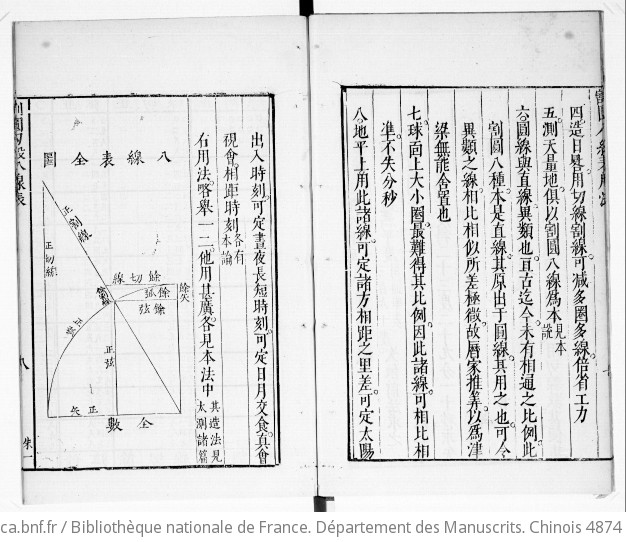 四造日晷用切線割線可减多圈多線倍省工力
五測天量地俱以割圓八線為本見本說
六圓線與直線異類也亘古迄今未有相通之比例此
割圓八種本是直線其原出于圓線其用之也可令
異類之線相比相似所差極微故曆家推筭以為津
梁無能舍置也
七球面上大小圈最難得其比例因此諸線可相比相
準不失分秒
八地平上用此諸線可定諸方相距之里差可定太陽
出入時刻可定晝夜長短時刻可定日月交食真會
視會相距時刻各有本論
右用法略舉一二他用甚廣各見本法中其造法見太測諸篇
八線表全圖
正割線
正切線
餘切線
餘割線
餘矢
餘弧
餘弦
正弧
正弦
正矢
全數
八
朱一
ca.bnf.fr / Bibliothèque nationale de France. Département des Manuscrits. Chinois 4874